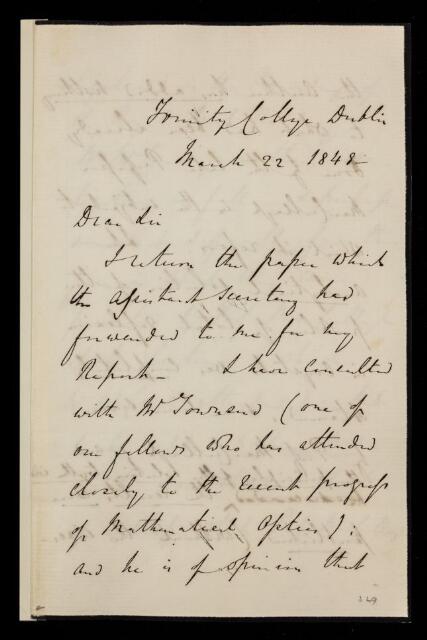 Trinity College Dublin
March 22 1848
Dear Sir
I return the paper which
the Assistant Secretary had
forwarded to me for my
Report – I have consulted
with Mr Townsend (one of
our fellows who has attended
closely to the recent progress
of Mathematical Optics);
and he is of opinion that
349